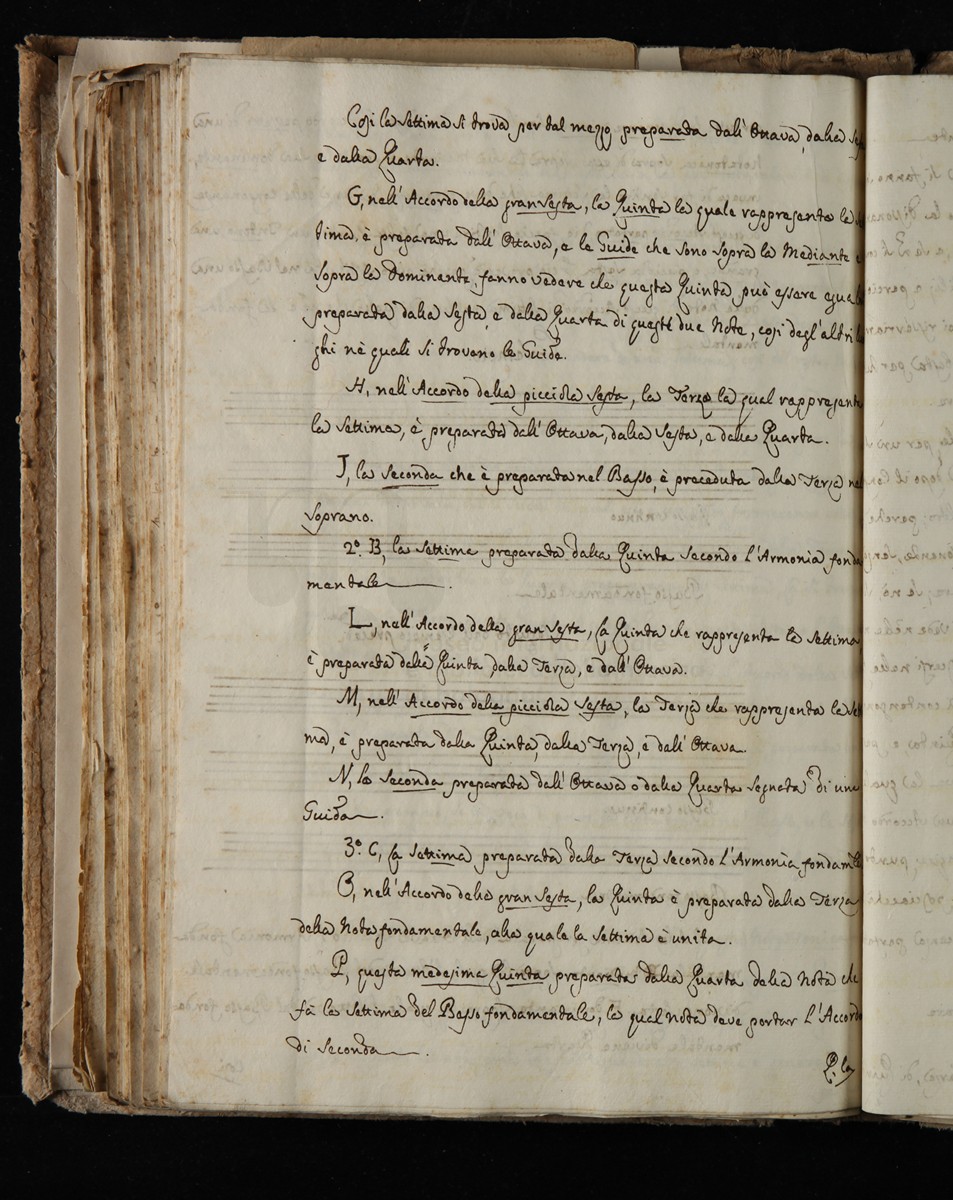 Così la Settima si trova per tal mezzo preparata dall'Ottava, dalla Ses
e dalla Quarta.
G, nell'Accordo della gran Sesta, la Quinta la quale rappresenta la
tima, è preparata dall'Ottava, e le Guide che sono sopra la Mediante e
sopra la Dominante, fanno vedere che questa Quinta può essere egual
preparata dalla Sesta, e dalla Quarta di queste due Note, così degl'altri l
ghi nè quali si trovano le Guide.
H, nell'Accordo della picciola Sesta, la Terza la qual rappresenta
la Settima, è preparata dall'Ottava, dalla Sesta, e dalla Quarta.
J, la Seconda che è preparata nel Basso, è preceduta dalla Terza nel
Soprano.
2º. B, la Settima preparata dalla Quinta secondo l'Armonia fonda
mentale.
L, nell'Accordo della gran Sesta, la Quinta che rappresenta la Settima
è preparata dalla Quinta, dalla Terza, e dall'Ottava.
M, nell'Accordo della picciola Sesta, la Terza che rappresenta la Set
ma, è preparata dalla Quinta, dalla Terza, e dall'Ottava.
N, la Seconda preparata dall'Ottava o dalla Quarta segnata di una
Guida.
3º. C, la Settima preparata dalla Terza secondo l'Armonia fondamle
O, nell'Accordo della gran Sesta, la Quinta è preparata dalla Terza
della Nota fondamentale, alla quale la Settima è unita.
P, questa medesima Quinta preparata dalla Quarta della Nota che
fà la Settima del Basso fondamentale, la qual nota deve portar l'Accordo
di Seconda.
Q. la